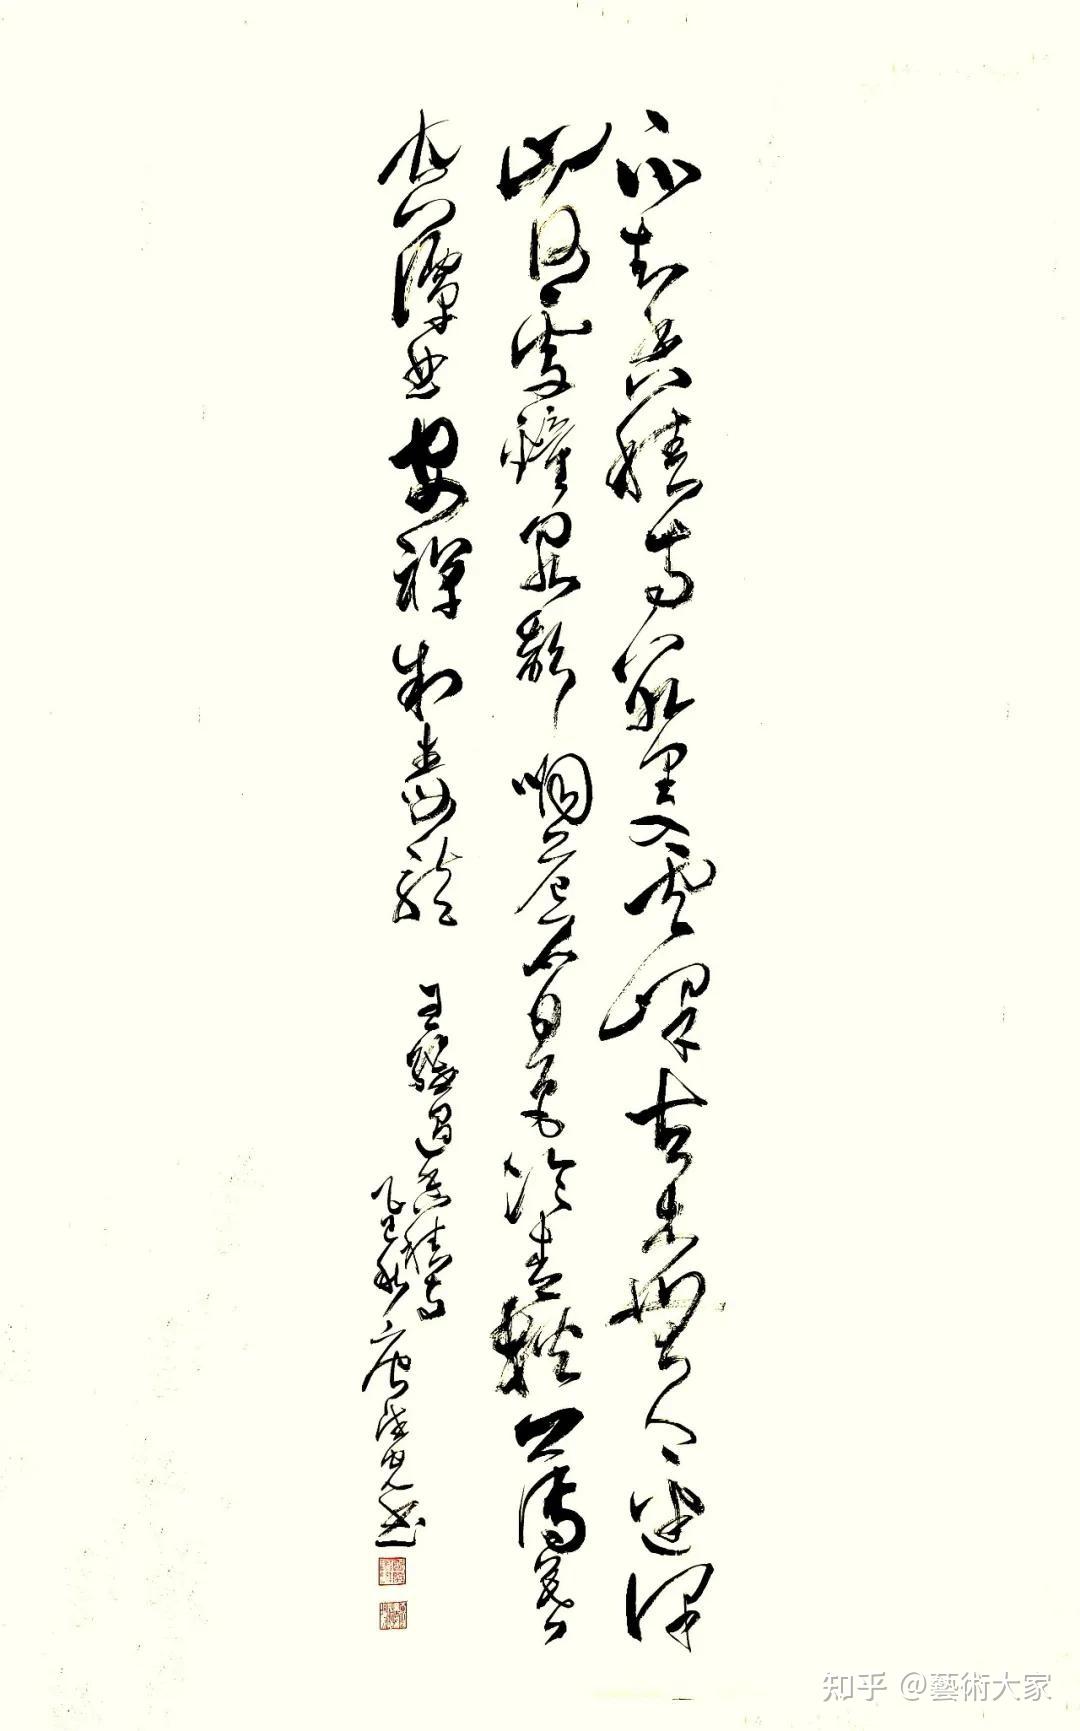 不知香積寺數里入雲峰古木無人逕深
山何處鐘泉聲咽危石日色冷青松薄暮
空潭曲安禪制毒龍 王維過香積寺
乙巳秋 唐 書
知乎 @藝術大家